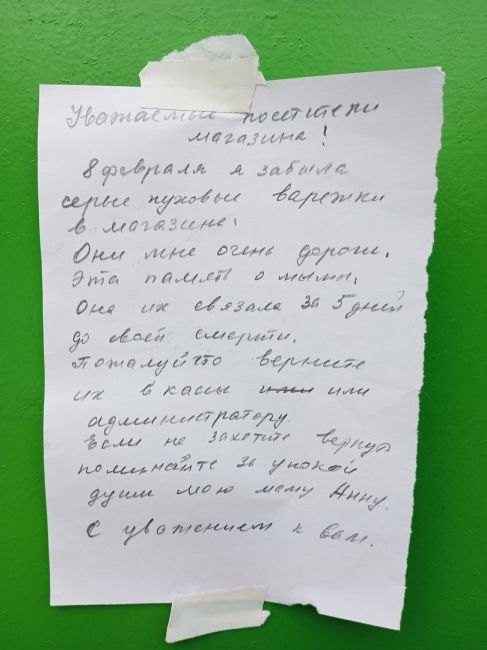 Уважаемые посетители
магазина!
8 февраля я забыла
серые пуховые варежки
в магазине.
Они мне очень дороги.
Эта память о мами.
Она их связала за 5 дней
до своей смерти.
Пожалуйсто верните
их в касы или или
администратору.
Если не захотите вернуть
поминайте за упокой
души мою маму Анну.
С уважением к вам.